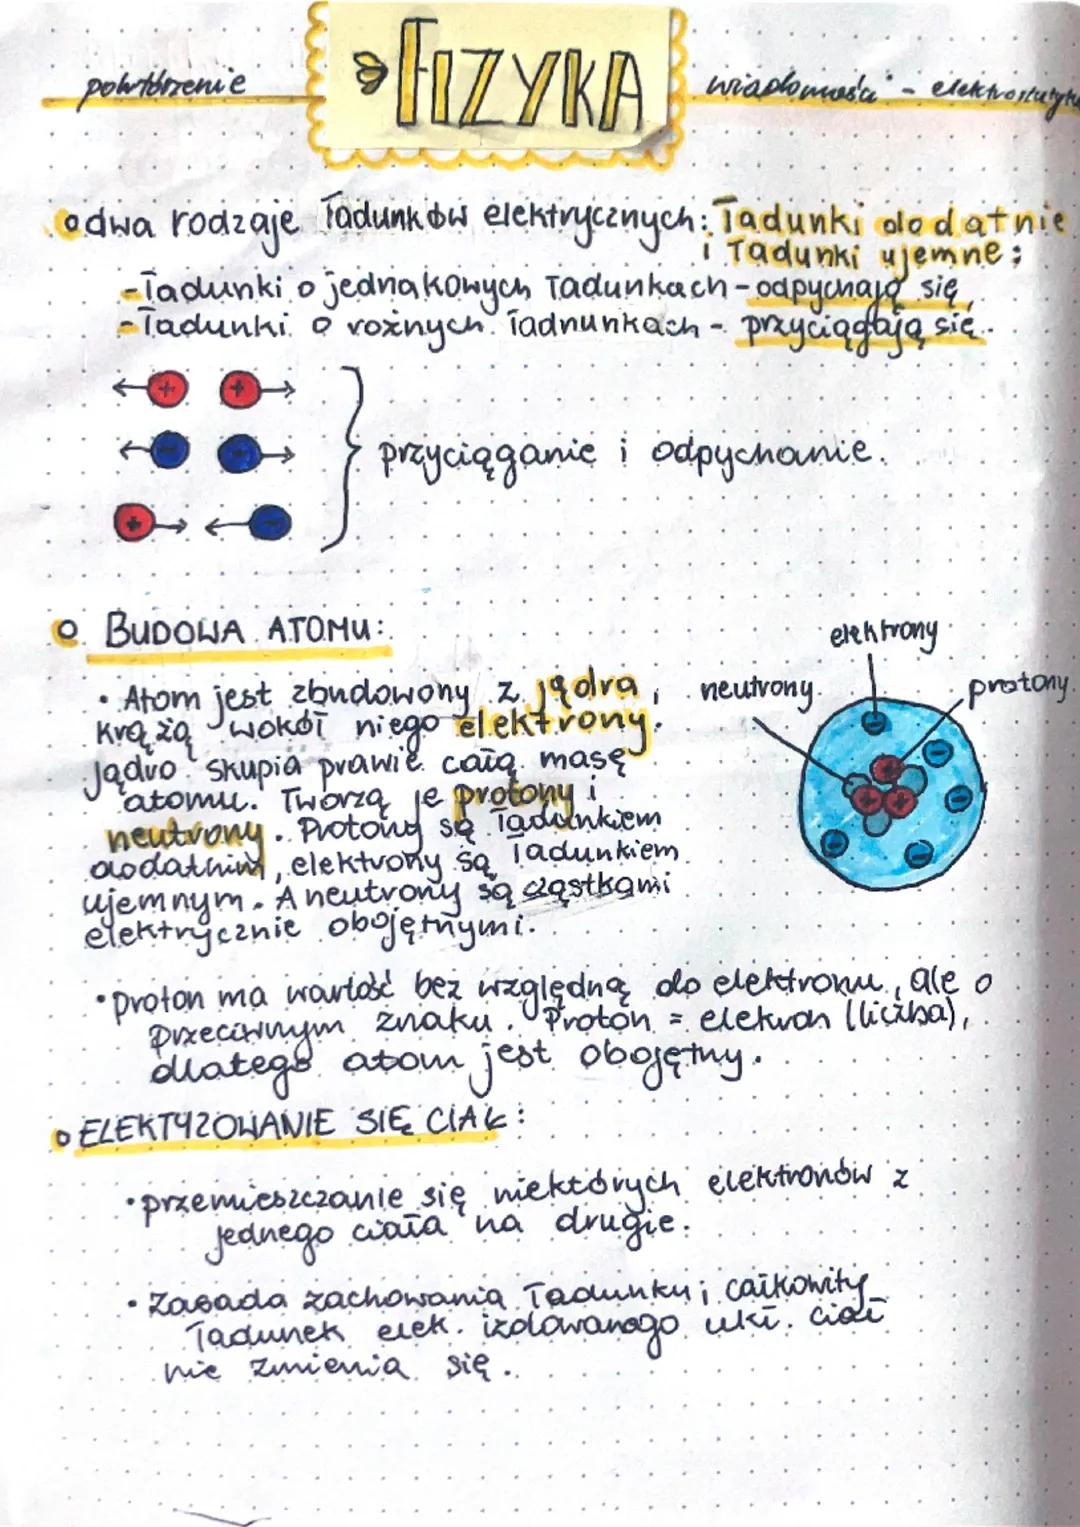 powtórzenie
FIZYKA
wiadomości - elektrostatyka
dwa rodzaje ładunków elektrycznych: ładunki dodatnie
i ładunki ujemne:
- ładunki o jednakowych ładunkach - odpychają się,
- ładunki o rożnych ładnunkach - przyciągają się.
+ +
- -
+ -
przyciąganie i odpychanie.
BUDOWA ATOMU:
elektrony
neutrony
protony
• Atom jest zbudowony z jądra,
krążą wokół niego elektrony.
Jądro skupia prawie całą masę
atomu. Tworzą je protony i
neutrony. Protony są ładunkiem
dodatnim, elektrony są ładunkiem
ujemnym. A neutrony są cząstkami
elektrycznie obojętnymi.
• proton ma wartość bez względną do elektronu, ale o
przeciwnym znaku. Proton = elekron (liczba),
dlatego atom jest obojętny.
ELEKTYZOWANIE SIĘ CIAŁ:
• przemieszczanie się niektórych elektronów z
jednego ciała na drugie.
• Zasada zachowania ładunku; całkowity
ładunek elek. izolowanego ukł. ciał
nie zmienia się.